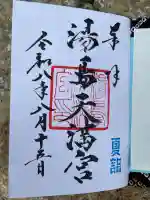 奉拝
湯島天満宮
令和八年八月十五日
夏詣